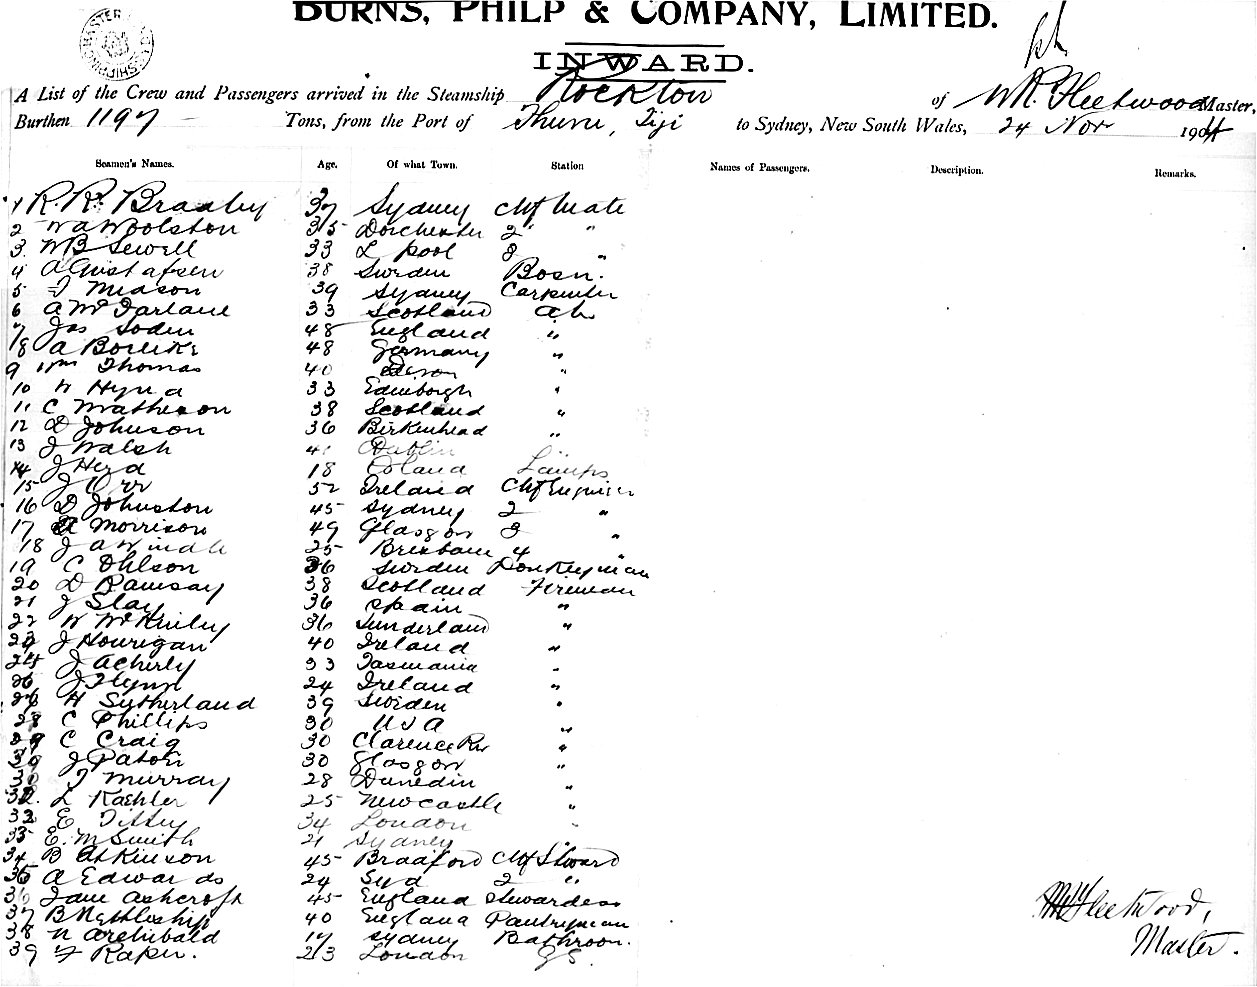 BURNS, PHILP & COMPANY, LIMITED.
INWARD.
A List of the Crew and Passengers arrived in the Steamship Rockton of W R. Fleetwood Master,
Burthen 1197 Tons, from the Port of Fiji to Sydney, New South Wales, 24 Nov 1904
Seamen's Names. Age. Of what Town. Station Names of Passengers. Description. Remarks.
1 R. R. Braaley 37 Sydney Chf Mate
2 W a Woolston 35 Dorchester 2 "
3 W B Sewell 33 L pool 3 "
4 A Gustafsen 38 Sweden Bosn.
5 J Meason 39 Sydney Carpenter
6 A McFarlane 33 Scotland ab
7 Jas Soden 48 England "
8 A 48 Germany "
9 Wm Thomas 40 Devon "
10 33 Edinborgh "
11 C Matheson 38 Scotland "
12 D Johnson 36 Birkenhead "
13 J Walsh 41 Dublin "
14 J Herd 18 Lamps
15 J Orr 52 Ireland Chf Engineer
16 D Johnston 45 Sydney 2 "
17 A Morrison 49 Glasgow 3 "
18 J A Windle 25 Brisbane 4 "
19 C Ohlson 36 Sweden Donkeyman
20 D Ramsay 38 Scotland Fireman
21 J Slay 36 Spain "
22 W McKinley 36 Sunderland "
23 J Hourigan 40 Ireland "
24 J Acherly 33 Tasmania "
26 J Flynn 24 Ireland "
H Sutherland 39 Sweden
28 C Phillips 30 U S A "
29 C Craig 30 Clarence Rvr "
J Paton 30 Glasgow "
T Murray 28 Dunedin
32. L Kaehler 25 Newcastle "
E Titley 34 London "
E. M Smith 21 Sydney "
34 B Atkinson 45 Bradford Chf Steward
A Edwards 24 Syd 2 "
36 Jane Ashcroft 45 England Stewardess
37 B Nettleship 40 England Pantryman
38 N Archibald 17 Sydney Bathroom.
39 F Raper. 23 London G S.
W R Fleetwood,
Master.